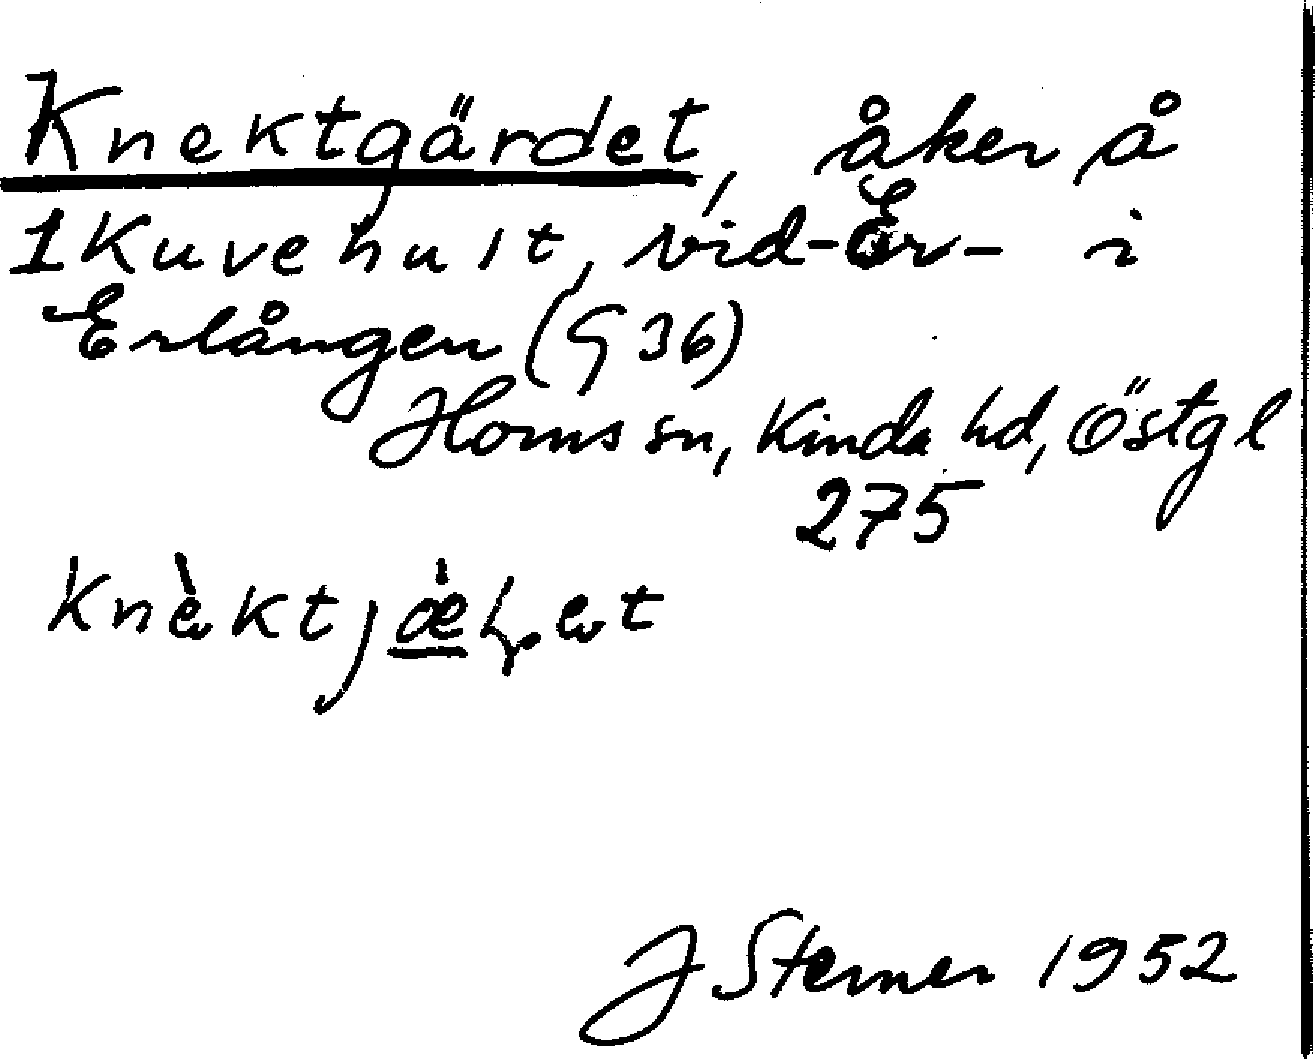 Knektgärdet, åker å
1 Kuvehult, vid -Er- i
Erlången (§ 36)
Horns sn, Kinda hd, Östgl
275
J Sterner 1952